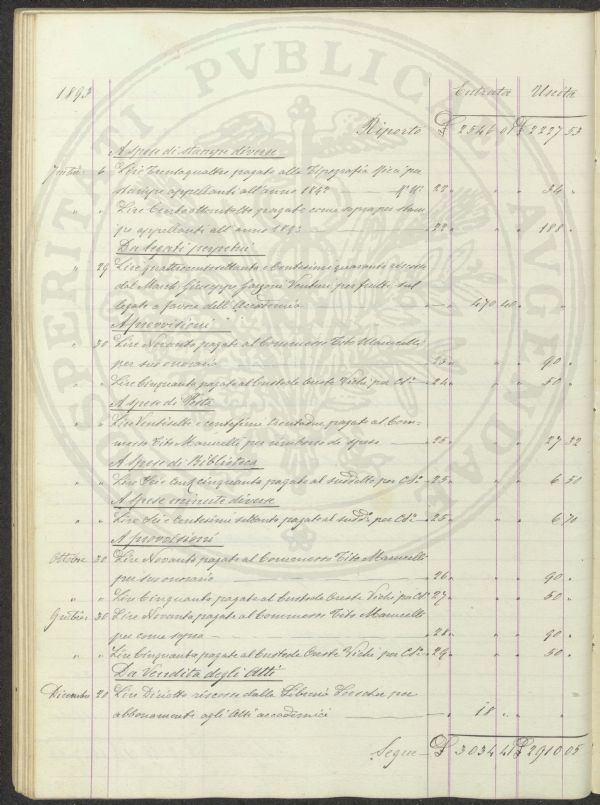 PROSPERITATI PUBLICAE AUGENDAE
1893 Entrata Uscita
Riporto £ 2546 01 £ 2227 53
A spese di stampe diverse
6 Lire Trentaquattro pagate alla Tipografia Ricci per
stampe appellanti all'anno 1892 22 " " " 34 "
" " Lire Centottantotto pagate come sopra per stam
pe appellanti all'anno 1893 22 " " " 188 "
Da legati perpetui
" 29 Lire quattrocentosettanta e Centesimi quaranta riscosse
dal March. Giuseppe Garzoni Venturi per frutti sul
legato a favore dell'Accademia " 470 40 " "
A provvisioni
" 30 Lire Novanta pagate al Commesso Tito Mannelli
per suo onorario 23 " " " 90 "
" " Lire Cinquanta pagate al Custode Oreste Vichi per Cs. 24 " " " 50 "
A spese di Posta
" " Lire Ventisette e centesimi trentadue pagate al Com-
messo Tito Mannelli per rimborso di spese 25 " " " 27 32
A spese di Biblioteca
" " Lire Sei e Cent. cinquanta pagate al suddetto per Cs. 25 " " " 6 50
A spese minute diverse
" " Lire Sei e Centesimi settanta pagate al sudd. per Cs. 25 " " " 6 70
A provvisioni
Ottobre 30 Lire Novanta pagate al Commesso Tito Mannelli
per suo onorario 26 " " " 90 "
" " Lire Cinquanta pagate al Custode Oreste Vichi per Cs. 27 " " " 50 "
30 Lire Novanta pagate al Commesso Tito Mannelli
per come sopra 28 " " " 90 "
" " Lire Cinquanta pagate al Custode Oreste Vichi per Cs. 29 " " " 50 "
Da Vendita degli Atti
Dicembre 20 Lire Diciotto riscosse dalla Libreria Loescher per
abbonamenti agli Atti accademici " 18 " " "
Segue £ 3034 41 £ 2910 05